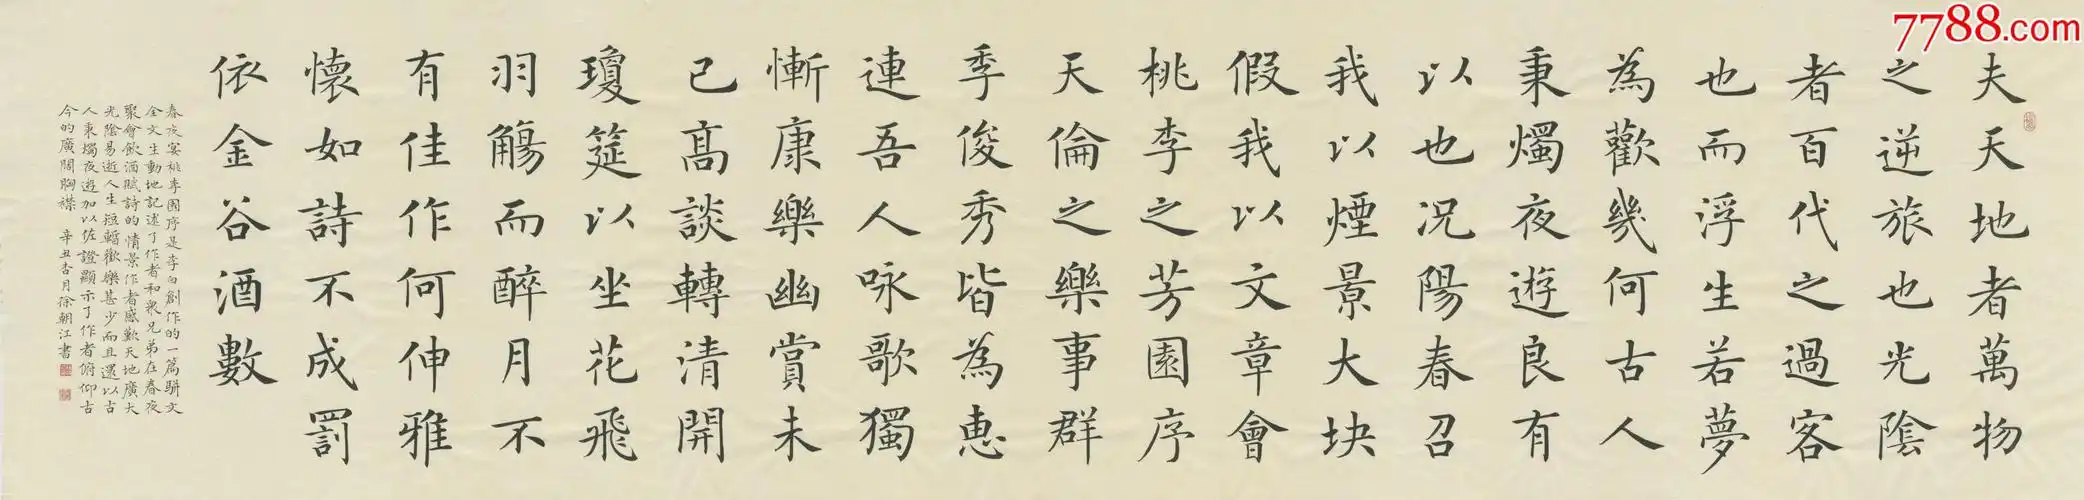 夫天地者萬物
之逆旅也光陰
者百代之過客
也而浮生若夢
為歡幾何古人
秉燭夜遊良有
以也况陽春召
我以煙景大块
假我以文章會
桃李之芳園序
天倫之樂事群
季俊秀皆為惠
連吾人咏歌獨
慚康樂幽賞未
已髙談轉清開
瓊筵以坐花飛
羽觴而醉月不
有佳作何伸雅
懷如詩不成罰
依金谷酒數
春夜宴桃李園序是李白創作的一篇駢文
全文生動地記述了作者和衆兄弟在春夜
聚會飲酒賦詩的情景作者感歎天地廣大
光陰易逝人生短暫歡樂甚少而且還以古
人秉燭夜遊加以佐證顯示了作者俯仰古
今的廣闊胸襟 辛丑杏月徐朝江書
7788.com